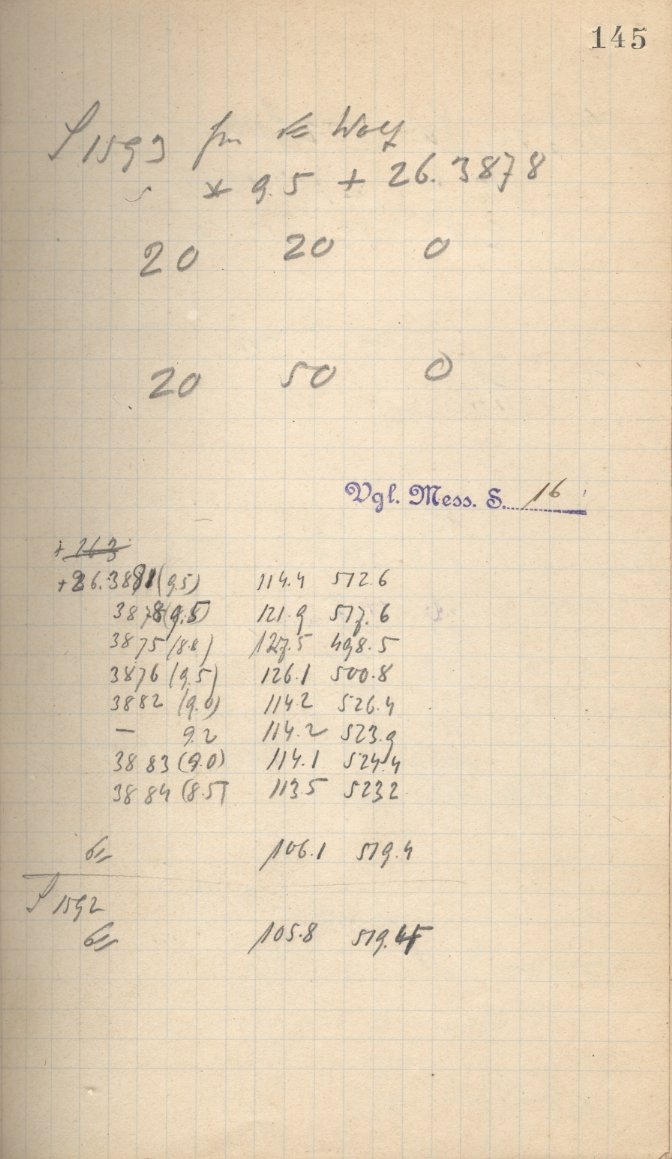 145
P1593 für Wolf
* 9.5 + 26.3878
20 20 0
20 50 0
Vgl. Mess. S. 16
+ 263
+26.3881 (9.5) 114.4 512.6
3878 (9.5) 121.9 517.6
3875 (8.8) 127.5 498.5
3876 (9.5) 126.1 500.8
3882 (9.0) 114.2 526.4
— 9.2 114.2 523.9
3883 (9.0) 114.1 524.4
3884 (8.5) 113.5 523.2
106.1 519.4
P1592
105.8 519.4